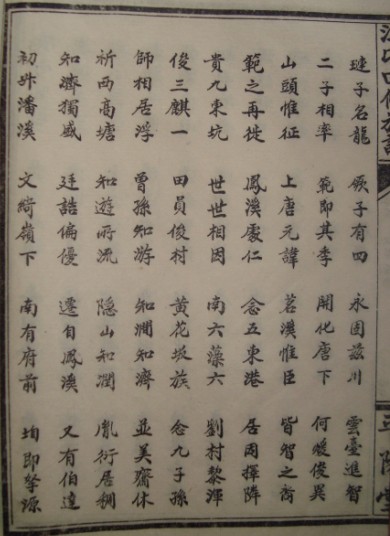 璉子名龍 厥子有四 永固 川 雲臺進智
二子相率 範即其季 開化唐下 何暖俊異
山頭惟征 上唐元諱 茗溪惟臣 皆智之裔
範之再徙 鳳溪處仁 念五東港 居周擇隣
貴九東坑 世世相因 南六藻六 劉村黎渾
俊三麒一 田員俊村 黃花坂族 念九子孫
師相居浮 曾孫知游 知澗知濟 並美齋休
析西高塘 知遊所流 隐山知潤 胤衍居稠
知濟獨盛 廷誥偏優 遷自鳳溪 又有伯達
初 潘溪 文綺嶺下 南有府前 均即 源